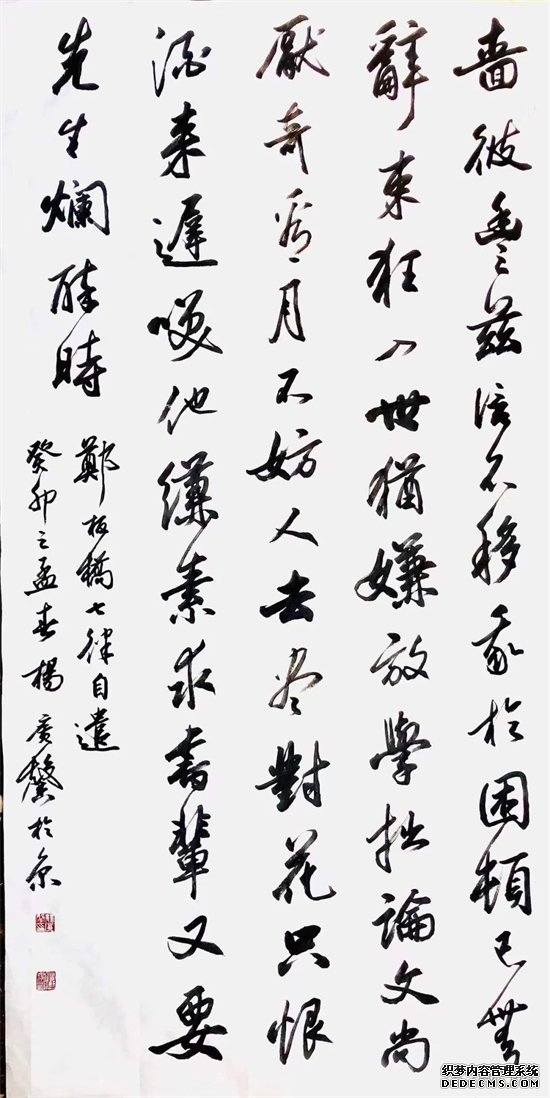 嗇彼豐茲信不移我於困頓已無
辭束狂入世猶嫌放學拙論文尚
厭奇看月不妨人去盡對花只恨
酒來遲咲他縑素求書輩又要
先生爛醉時
鄭板橋七律自遣
癸卯之孟春楊廣馨於京
织梦内容管理系统
DEDECMS.COM